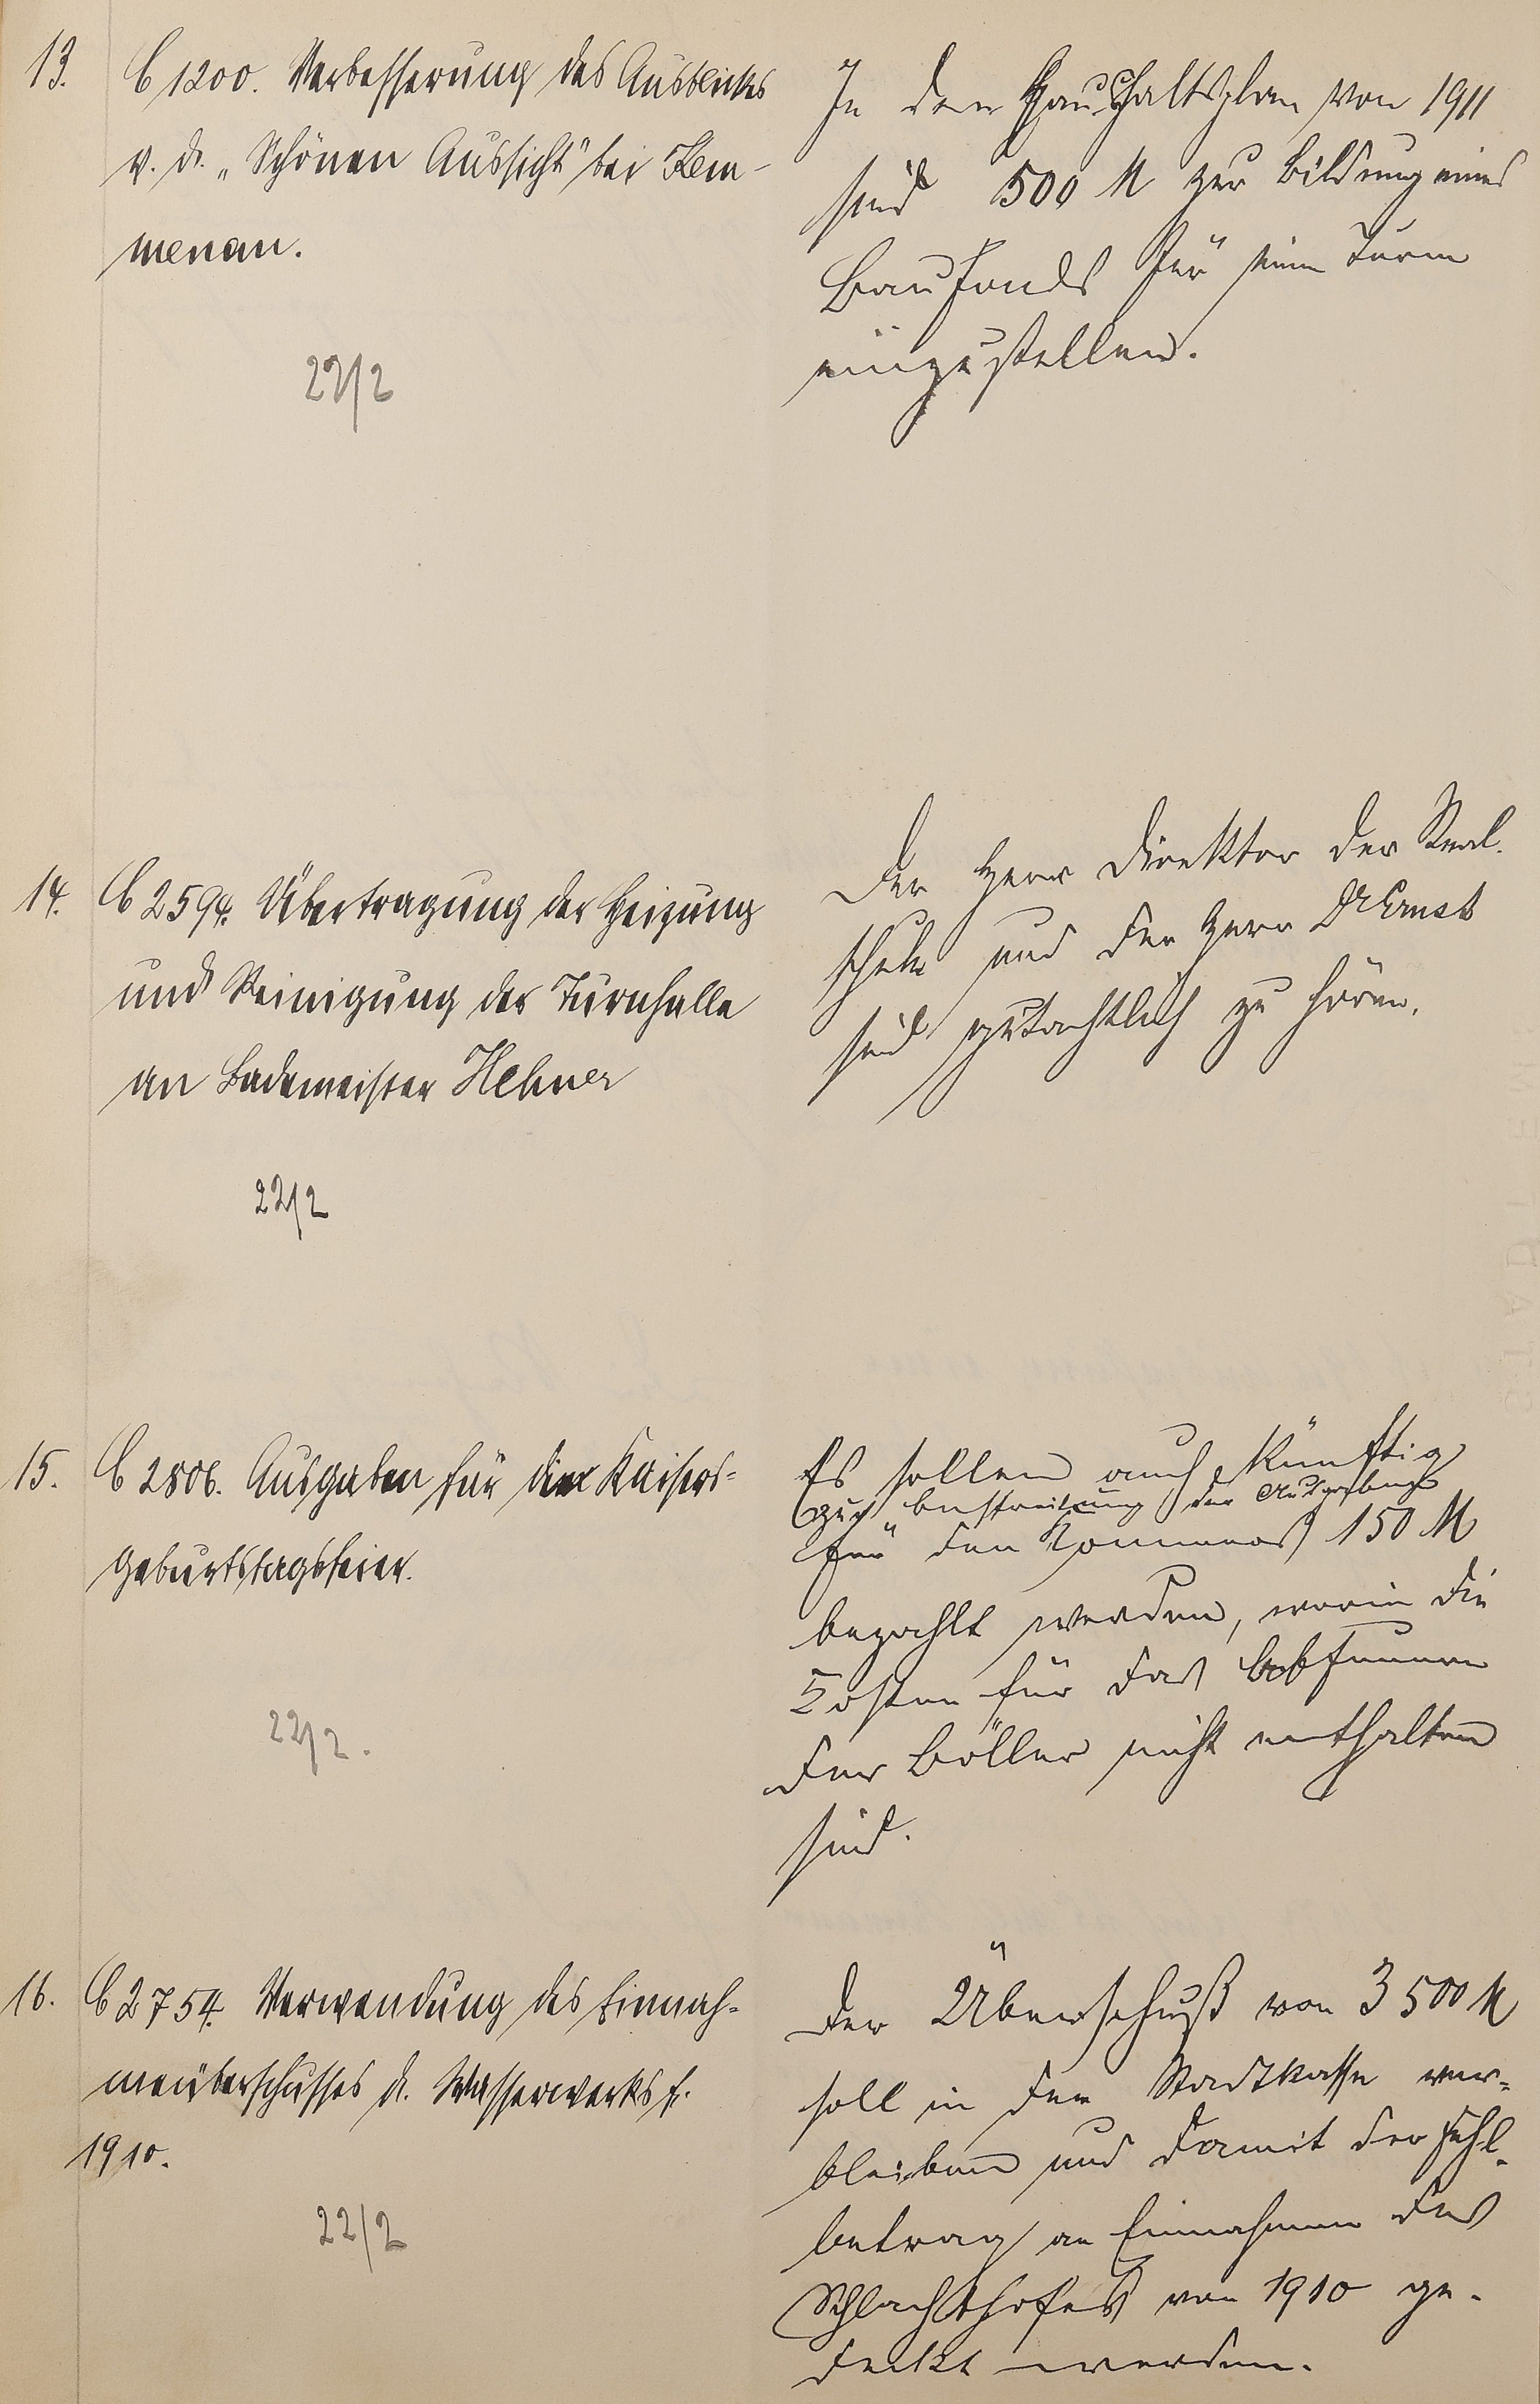 13. C 1200. Verbesserung des Ausblickes
v. d. „Schönen Aussicht" bei Kem-
menau.
22/2
In den Haushaltsplan von 1911
sind 500 M zur Bildung eines
Baufonds für einen Turm
einzustellen.
14. C 2594. Übertragung der Heizung
und Reinigung der Turnhalle
an Bademeister Hehner
22/2
Der Herr Direktor der Real-
schule und der Herr Dr Ernst
sind gutachtlich zu hören.
15. C 2806. Ausgaben für die Kaisers-
geburtstagsfeier.
22/2.
Es sollen auch künftig
zur Bestreitung der Ausgaben
für den Kommers 150 M
bezahlt werden, worin die
Kosten für das Abfeuern
der Böller nicht enthalten
sind.
16. C 2754. Verwendung des Einnah-
meüberschusses d. Wasserwerks f.
1910.
22/2
Der Überschuß von 3500 M
soll in der Stadtkasse ver-
bleiben und damit der Fehl-
betrag an Einnahmen des
Schlachthofes von 1910 ge-
deckt werden.